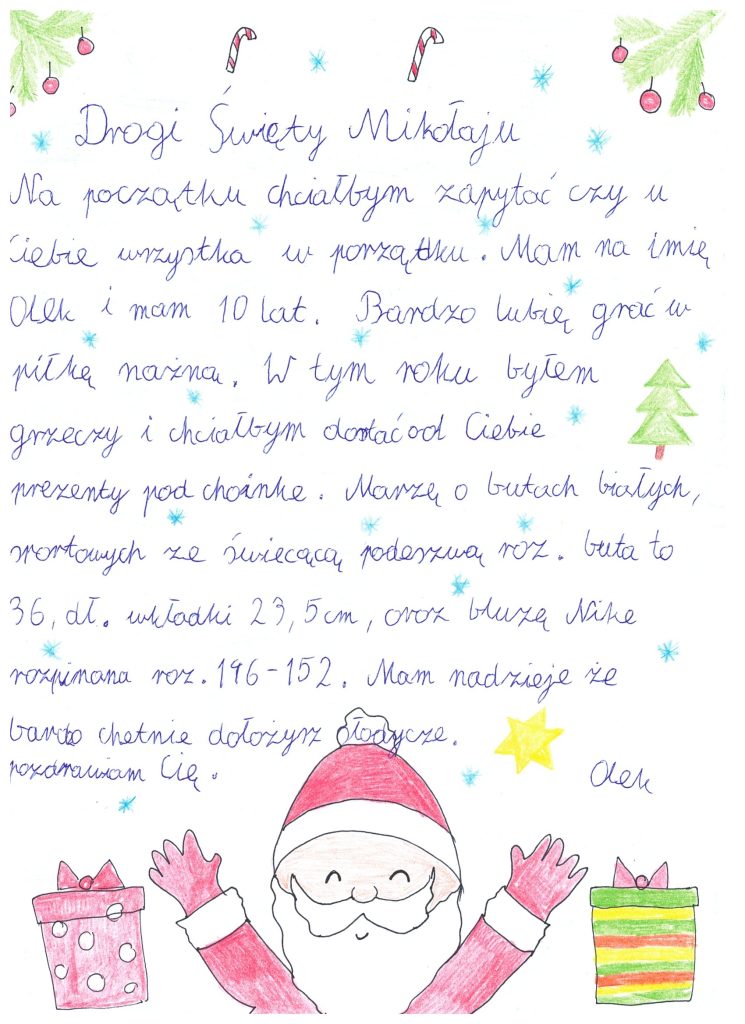 Drogi Święty Mikołaju
Na początku chciałbym zapytać czy u
Ciebie wszystka w porządku. Mam na imię
Olek i mam 10 lat. Bardzo lubię grać w
piłkę nażną. W tym roku byłem
grzeczy i chciałbym dostać od Ciebie
prezenty pod choinkę. Marzę o butach białych,
sportowych ze świecącą podeszwą roz. buta to
36, dł. wkładki 23,5cm, oroz bluzę Nike
rozpinana roz. 146-152. Mam nadzieje że
bardo chetnie dołożysz słodycze.
pozdrawiam Cię.
Olek